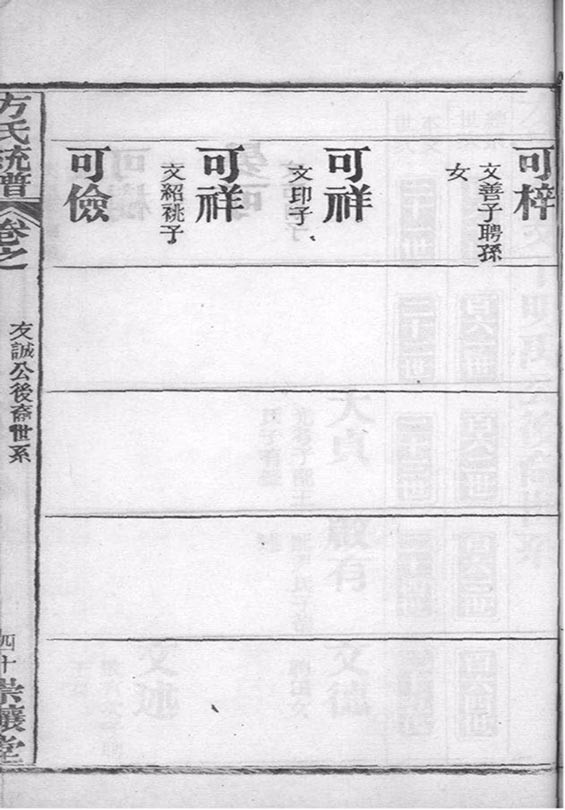 可梓
文善子聘孫
女
可祥
文印子
可祥
文紹祧子
可儉
方氏統譜
卷之
友誠公後裔世系
四十